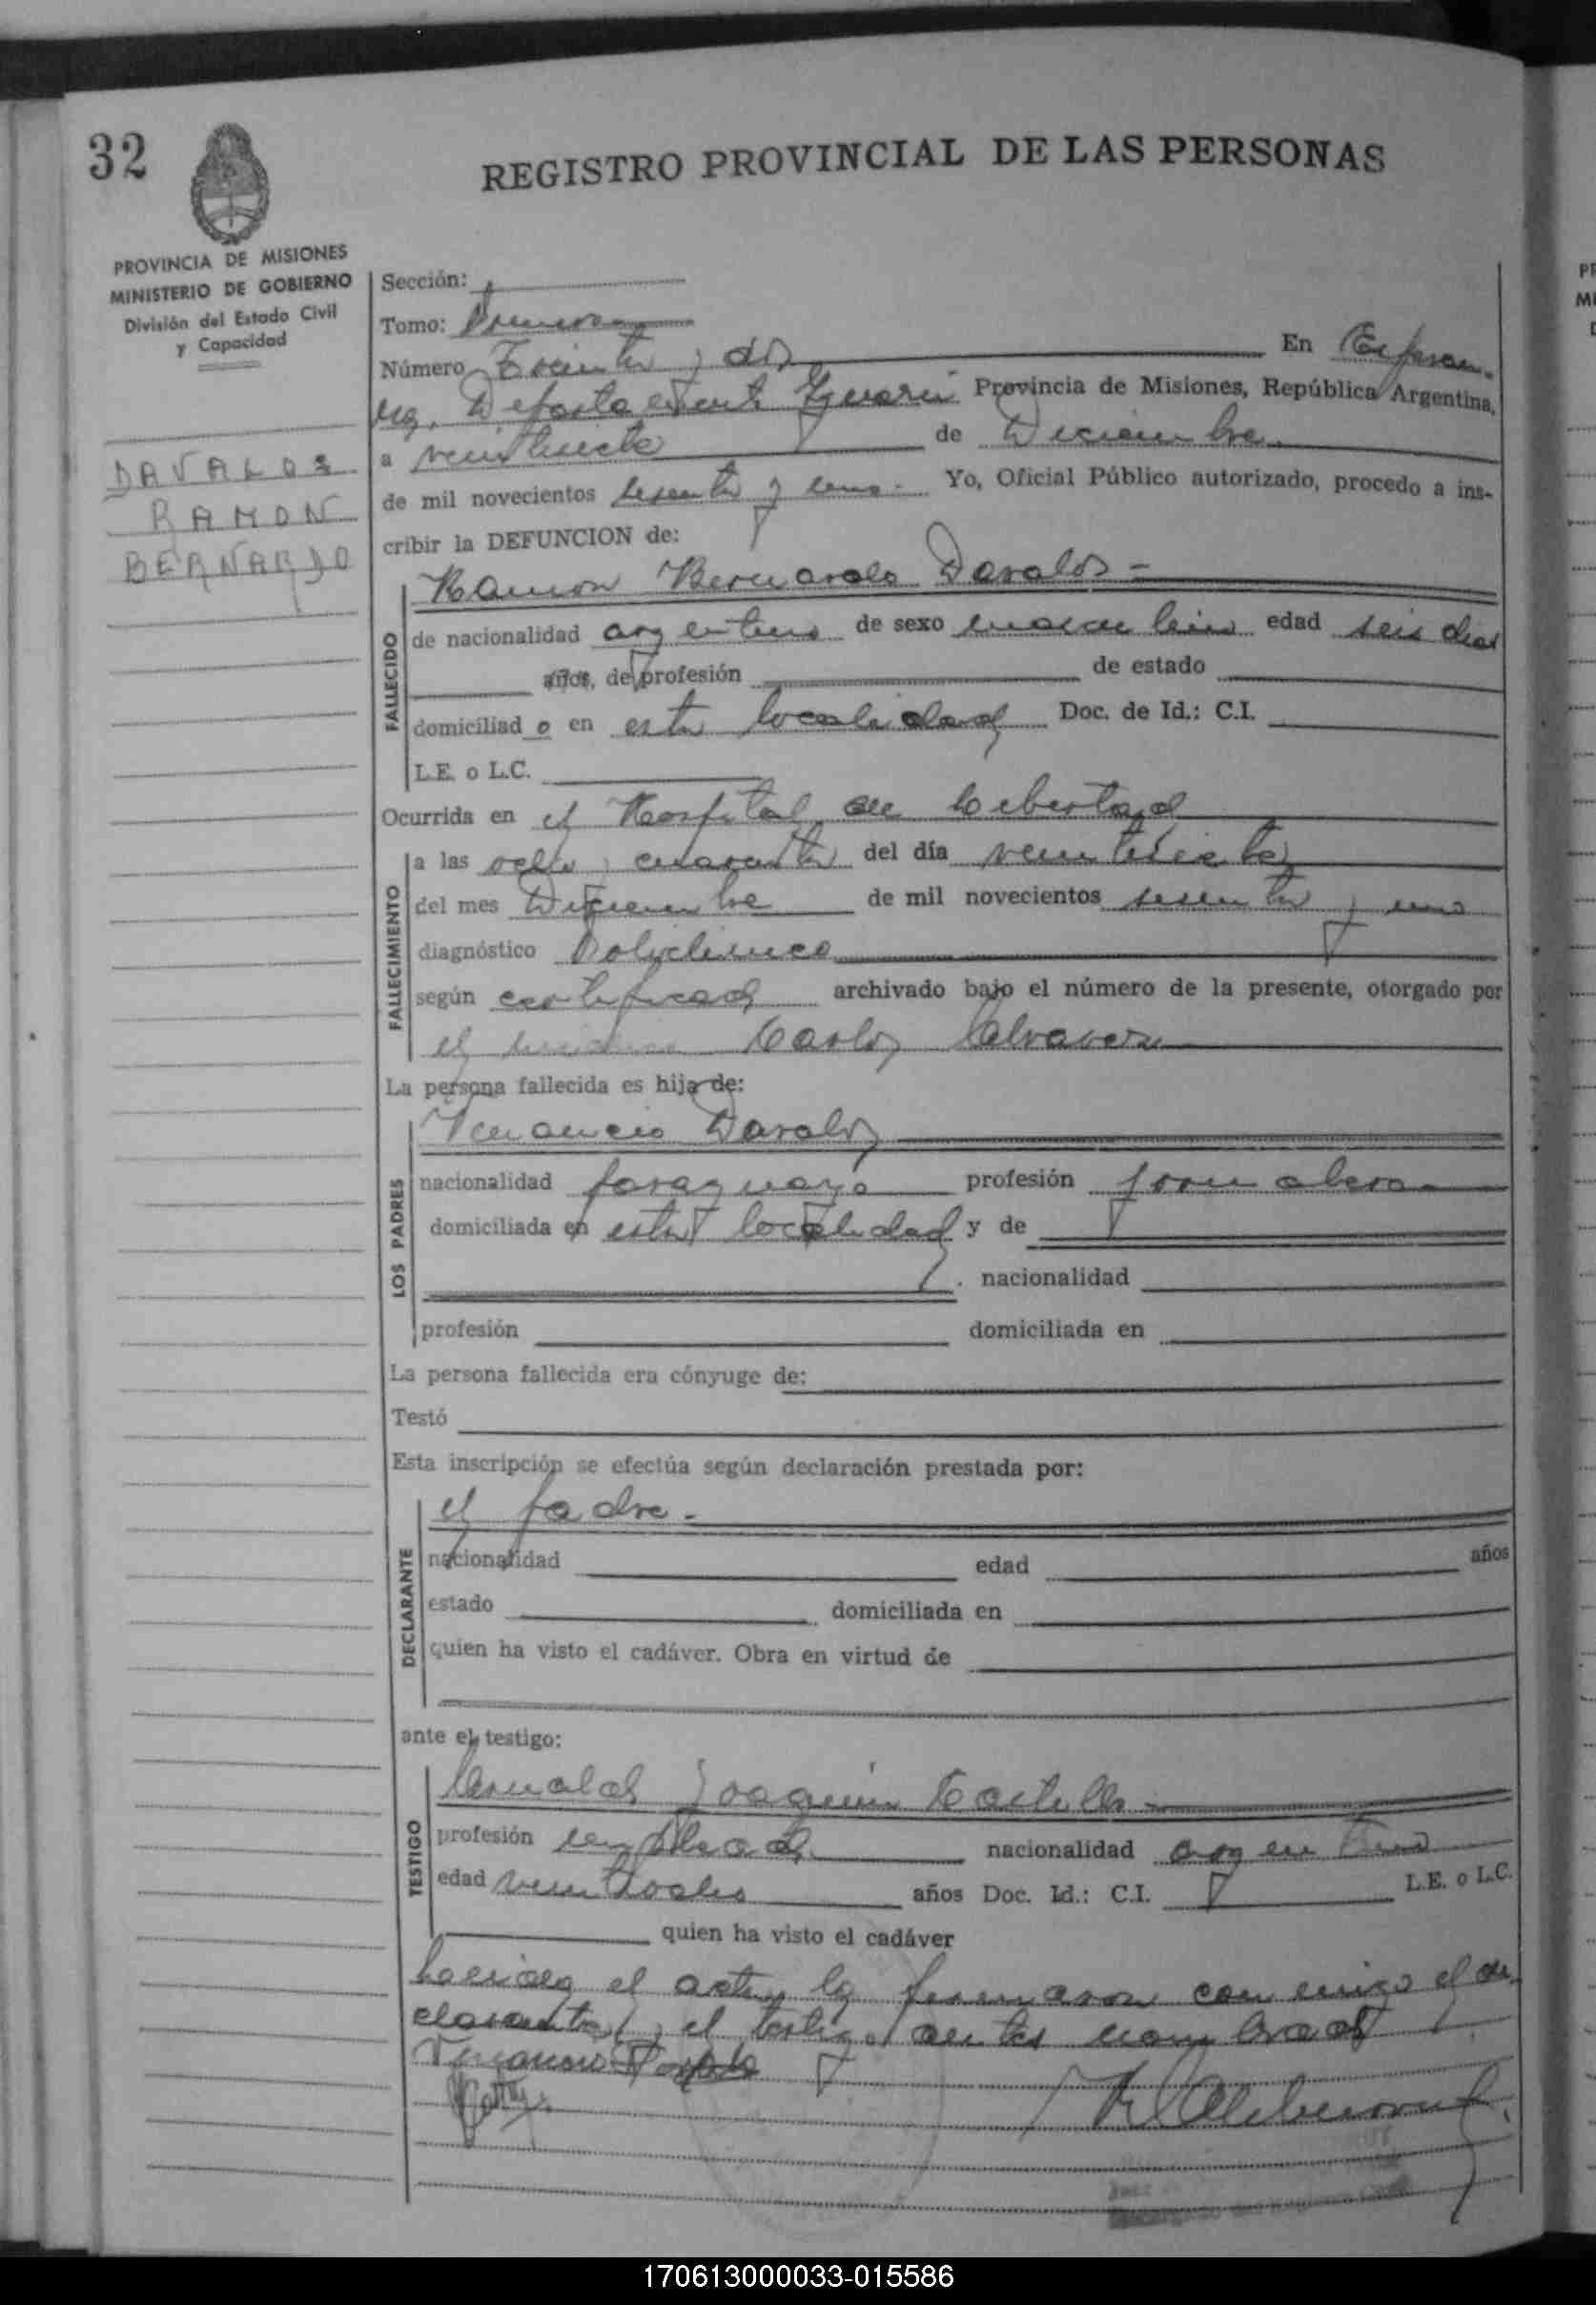 32
REGISTRO PROVINCIAL DE LAS PERSONAS
PROVINCIA DE MISIONES
MINISTERIO DE GOBIERNO
División del Estado Civil
y Capacidad
DAVALOS
RAMON
BERNARDO
Sección:
Tomo: Primero
Número Treinta y dos En Esperan-
za, Departamento Iguazú Provincia de Misiones, República Argentina,
a veintisiete de Diciembre
de mil novecientos sesenta y uno. Yo, Oficial Público autorizado, procedo a ins-
cribir la DEFUNCION de:
Ramon Bernardo Davalos -
FALLECIDO
de nacionalidad argentino de sexo masculino edad seis dias
años, de profesión de estado
domiciliad o en esta localidad Doc. de Id.: C.I.
L.E. o L.C.
Ocurrida en el Hospital de Libertad
FALLECIMIENTO
a las ocho y cuarenta del día veintisiete
del mes Diciembre de mil novecientos sesenta y uno
diagnóstico
según certificado archivado bajo el número de la presente, otorgado por
el Carlos
La persona fallecida es hijo de:
LOS PADRES
Venancio Davalos
nacionalidad paraguayo profesión jornalero
domiciliada en esta localidad y de
nacionalidad
profesión domiciliada en
La persona fallecida era cónyuge de:
Testó
Esta inscripción se efectúa según declaración prestada por:
DECLARANTE
el padre.
nacionalidad edad años
estado domiciliada en
quien ha visto el cadáver. Obra en virtud de
ante el testigo:
TESTIGO
Joaquin Castillo
profesión empleado nacionalidad argentino
edad veintiocho años Doc. Id.: C.I. L.E. o L.C.
quien ha visto el cadáver
el acta, la firmaron conmigo el de-
clarante y el testigo antes nombrado
Venancio Davalos
170613000033-015586